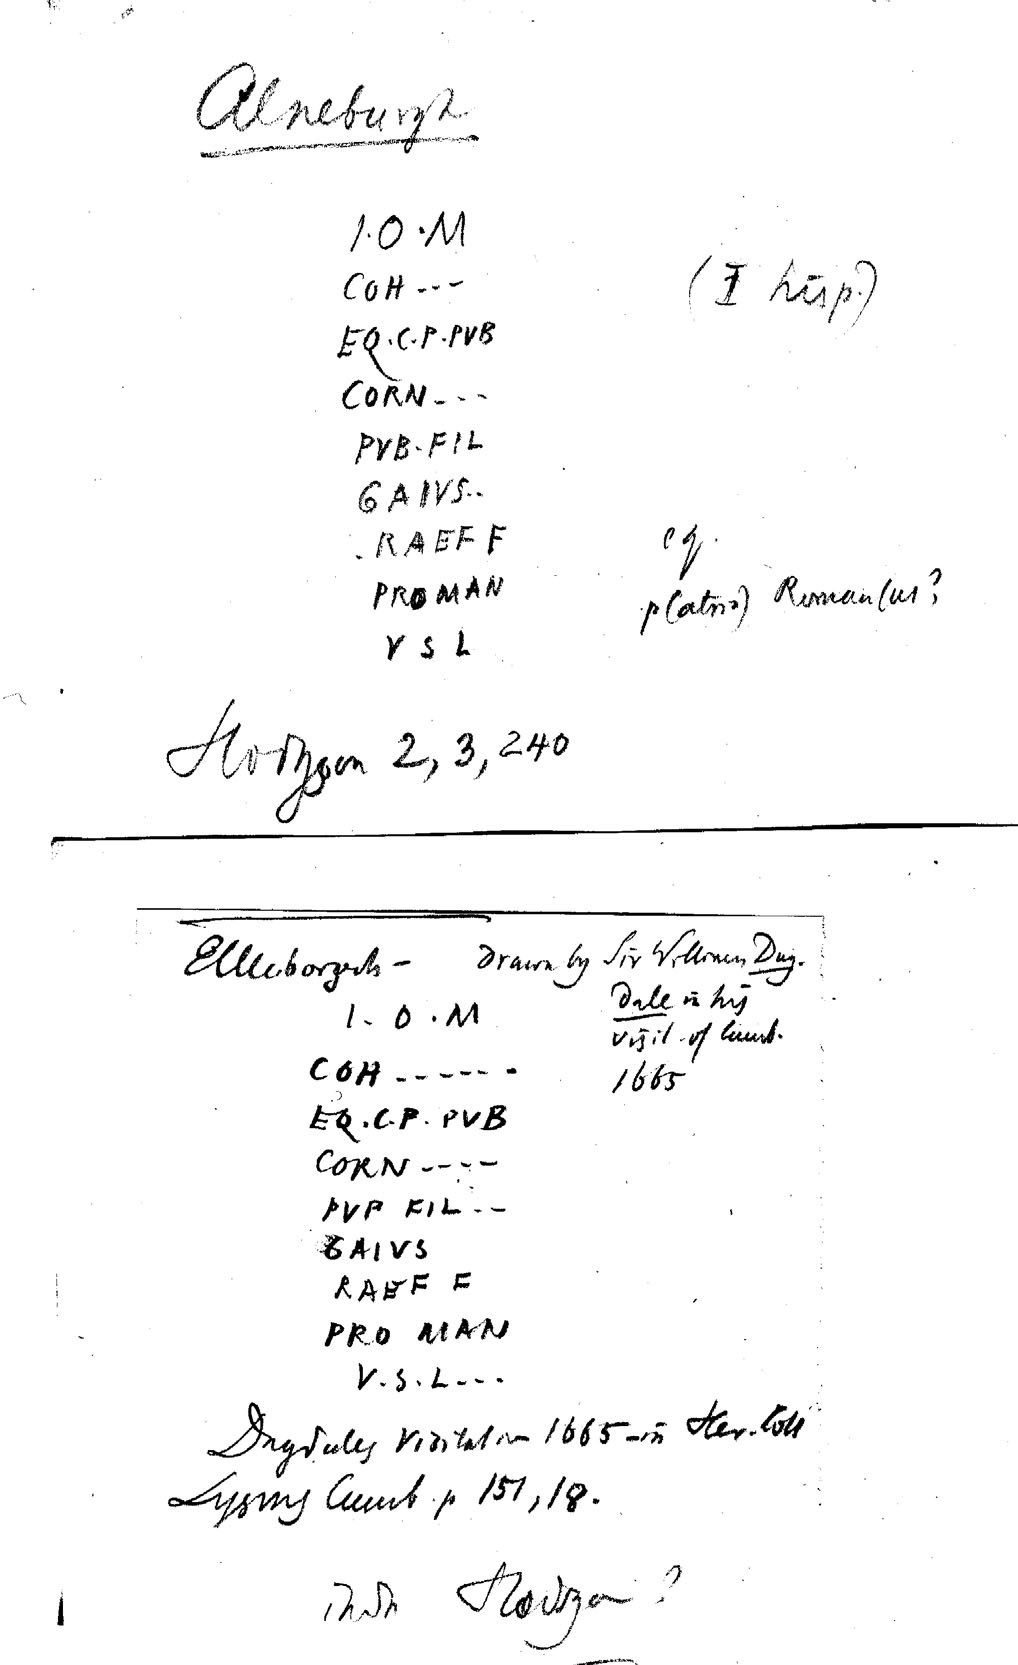 Alneburgh
I·O·M
COH --- (I hisp.)
EQ.C.P.PVB
CORN---
PVB.FIL
GAIVS..
.RAEF F eq.
PROMAN p(atria) Roman(us?
V S L
Hodgson 2, 3, 240
Elleborgh - Drawn by Sir William Dug.
Dale in his
I. O. M visit. of Cumb.
COH ------ 1665
EQ.C.P. PVB
CORN ----
PVP FIL --
GAIVS
RAEF F
PRO MAN
V.S.L---
Dugdales Visitation 1665 - in Her. Coll
Lysons Cumb. p 151, 18.
Hodgson?